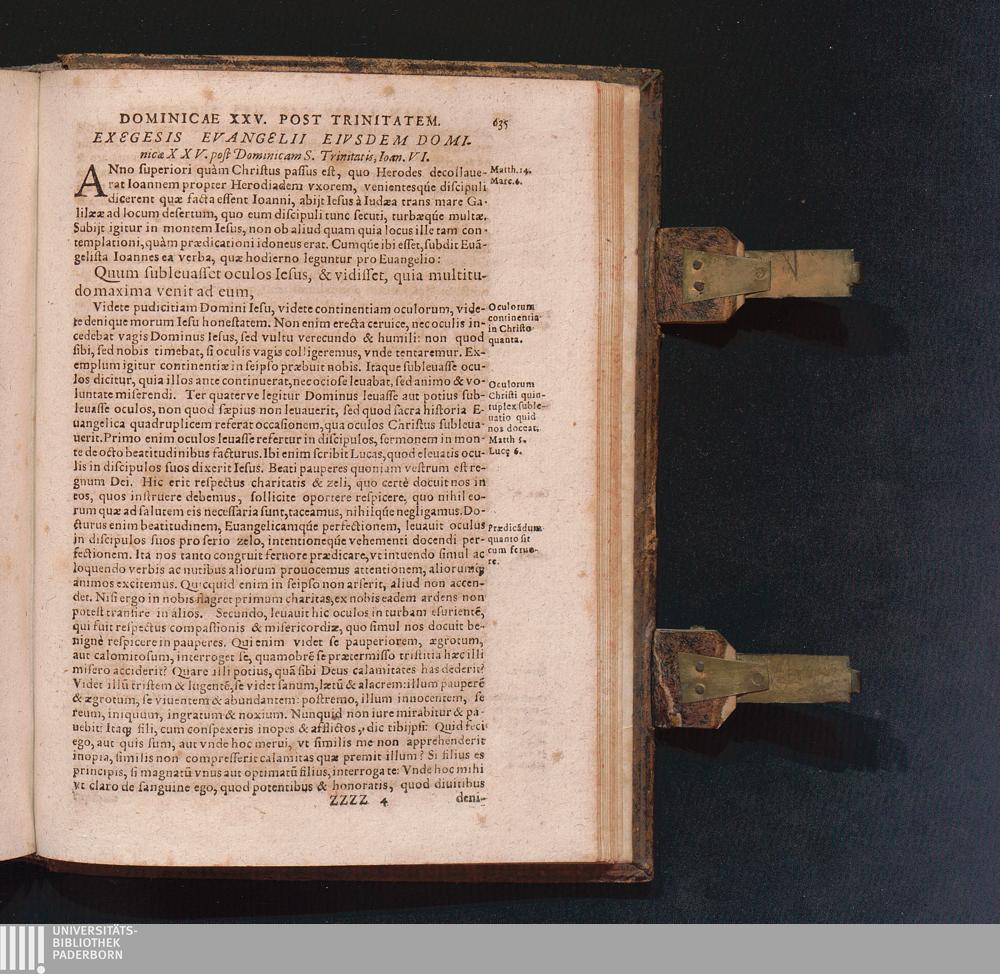 DOMINICAE XXV. POST TRINITATEM. 635
EXEGESIS EVANGELII EIVSDEM DOMI-
nicæ XXV. post Dominicam S. Trinitatis, Ioan. VI.
ANno superiori quàm Christus passus est, quo Herodes decollaue-
rat Ioannem propter Herodiadem vxorem, venientesq́ue discipuli
dicerent quæ facta essent Ioanni, abijt Iesus à Iudæa trans mare Ga-
lilææ ad locum desertum, quo eum discipuli tunc secuti, turbæq́ue multæ.
Subijt igitur in montem Iesus, non ob aliud quam quia locus ille tam con-
templationi, quàm prædicationi idoneus erat. Cumq́ue ibi esset, subdit Euā-
gelista Ioannes ea verba, quæ hodierno leguntur pro Euangelio:
Quum subleuasset oculos Iesus, & vidisset, quia multitu-
do maxima venit ad eum,
Videte pudicitiam Domini Iesu, videte continentiam oculorum, vide-
te denique morum Iesu honestatem. Non enim erecta ceruice, nec oculis in-
cedebat vagis Dominus Iesus, sed vultu verecundo & humili: non quod
sibi, sed nobis timebat, si oculis vagis colligeremus, vnde tentaremur. Ex-
emplum igitur continentiæ in seipso præbuit nobis. Itaque subleuasse ocu-
los dicitur, quia illos ante continuerat, nec ociose leuabat, sed animo & vo-
luntate miserendi. Ter quaterve legitur Dominus leuasse aut potius sub-
leuasse oculos, non quod sæpius non leuauerit, sed quod sacra historia E-
uangelica quadruplicem referat occasionem, qua oculos Christus subleua-
uerit. Primo enim oculos leuasse refertur in discipulos, sermonem in mon-
te de octo beatitudinibus facturus. Ibi enim scribit Lucas, quod eleuatis ocu-
lis in discipulos suos dixerit Iesus. Beati pauperes quoniam vestrum est re-
gnum Dei. Hic erit respectus charitatis & zeli, quo certè docuit nos in
eos, quos instruere debemus, sollicite oportere respicere, quo nihil eo-
rum quæ ad salutem eis necessaria sunt, taceamus, nihilq́ue negligamus. Do-
cturus enim beatitudinem, Euangelicamq́ue perfectionem, leuauit oculus
in discipulos suos pro serio zelo, intentioneq́ue vehementi docendi per-
fectionem. Ita nos tanto congruit feruore prædicare, vt intuendo simul ac
loquendo verbis ac nutibus aliorum prouocemus attentionem, aliorumq́;
animos excitemus. Quicquid enim in seipso non arserit, aliud non accen-
det. Nisi ergo in nobis flagret primum charitas, ex nobis eadem ardens non
potest transire in alios. Secundo, leuauit hic oculos in turbam esurientē,
qui fuit respectus compassionis & misericordiæ, quo simul nos docuit be-
nignè respicere in pauperes. Qui enim videt se pauperiorem, ægrotum,
aut calomitosum, interroget se, quamobrē se prætermisso tristitia hæc illi
misero acciderit? Quare illi potius, quā sibi Deus calamitates has dederit?
Videt illū tristem & lugentē, se videt sanum, lætū & alacrem: illum pauperē
& ægrotum, se viuentem & abundantem: postremo, illum innocentem, se
reum, iniquum, ingratum & noxium. Nunquid non iure mirabitur & pa-
uebit? Itaq; fili, cum conspexeris inopes & afflictos, dic tibijpsi: Quid feci
ego, aut quis sum, aut vnde hoc merui, vt similis me non apprehenderit
inopia, similis non compresserit calamitas quæ premit illum? Si filius es
principis, si magnatū vnus aut optimatū filius, interroga te: Vnde hoc mihi
vt claro de sanguine ego, quod potentibus & honoratis, quod diuitibus
ZZZZ 4 deni-
Matth. 14.
Marc. 6.
Oculorum
continentia
in Christo
quanta.
Oculorum
Christi quin-
tuplex suble-
uatio quid
nos doceat.
Matth 5.
Lucę 6.
Prædicādum
quanto sit
cum feruo-
re.
UNIVERSITÄTS-
BIBLIOTHEK
PADERBORN